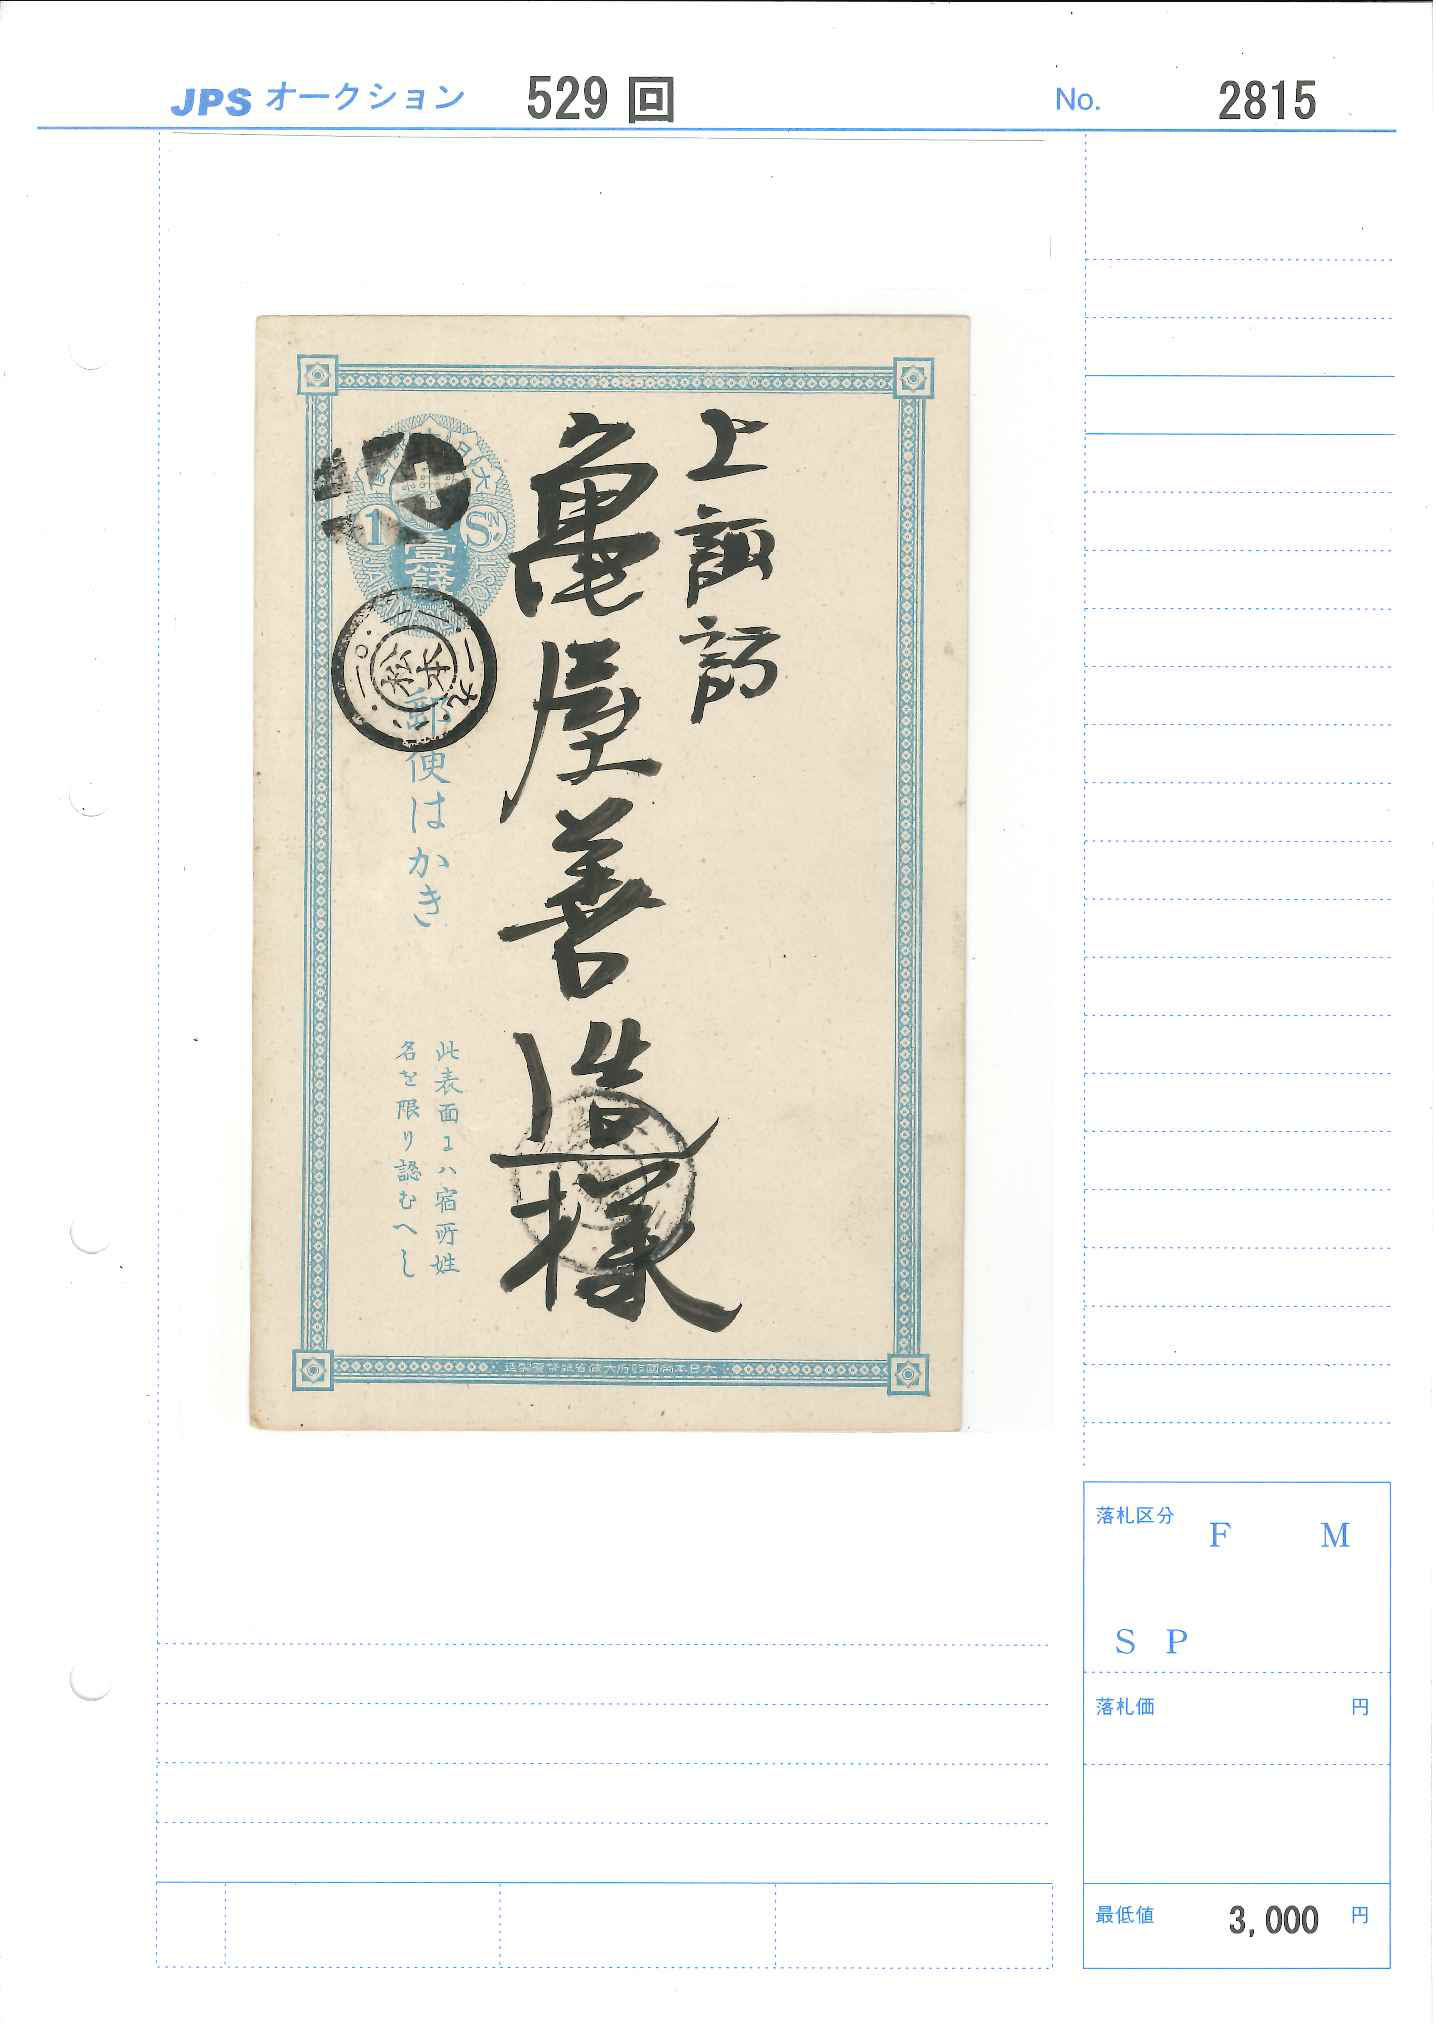 JPS オークション 529 回 No. 2815
上諏訪
亀屋善造様
大日
1 SN
壹錢
松本
郵便はかき
此表面ニハ宿所姓
名を限り認むへし
大日本帝國政府大蔵省紙幣寮製造
落札区分
F M
S P
落札価 円
最低値 3,000 円